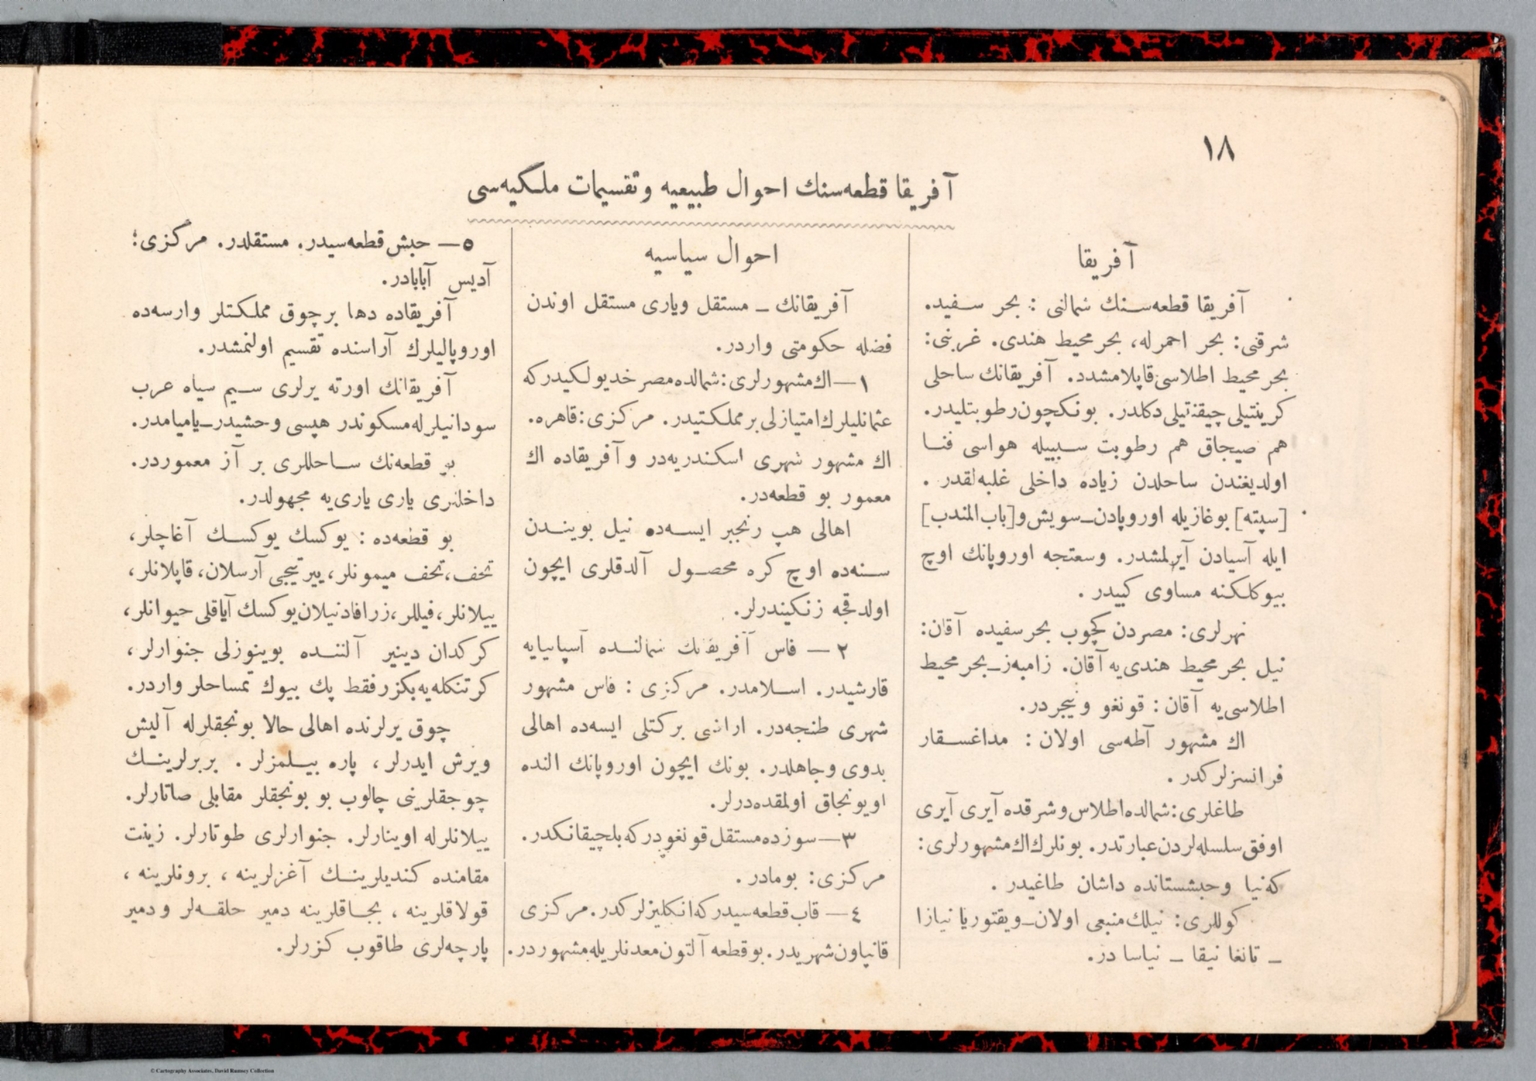 ١٨
آفريقا قطعه‌سنك احوال طبيعيه و تقسيمات ملكيه‌سى
آفريقا
آفريقا قطعه‌سنك شمالى : بحر سفيد.
شرقى: بحر احمرله، بحر محيط هندى. غربى:
بحر محيط اطلاسى قاپلامشدد. آفريقانك ساحلى
كرينتيلى چيقنتيلى دكلدر. بونكچون رطوبتليدر.
هم صيجاق هم رطوبت سببيله هواسى فنا
اولديغندن ساحلدن زياده داخلى غلبه‌لقدر .
[سپته] بوغازيله اوروپادن ــ سويش و [باب المندب]
ايله آسيادن آيرلمشدر. وسعتجه اوروپانك اوچ
بيوكلكنه مساوى كبيدر .
نهرلرى: مصردن كچوب بحر سفيده آقان:
نيل بحر محيط هندى‌يه آقان. زامبه‌ز ــ بحر محيط
اطلاسى‌يه آقان : قونغو و نيجردر.
اك مشهور آطه‌سى اولان : مداغسقار
فرانسزلركدر .
طاغلرى: شمالده اطلاس و شرقده آيرى آيرى
اوفق سلسله‌لردن عبارتدر. بونلرك اك مشهورلرى:
كه‌نيا و حبشستانده داشان طاغيدر .
كوللرى: نيلك منبعى اولان ــ ويقتوريا نيانزا
ــ تانغا نيقا ــ نياسا در.
احوال سياسيه
آفريقانك ــ مستقل و يارى مستقل اوندن
فضله حكومتى واردر.
١ ــ اك مشهورلرى: شمالده مصر خديولكيدركه
عثمانليلرك امتيازلى بر مملكتيدر. مركزى: قاهره.
اك مشهور شهرى اسكندريه‌در و آفريقاده اك
معمور بو قطعه‌در.
اهالى هپ رنجبر ايسه‌ده نيل بويندن
سنه‌ده اوچ كره محصول آلدقلرى ايچون
اولدقجه زنكيندرلر.
٢ ــ فاس آفريقانك شمالنده آسپانيايه
قارشيدر. اسلامدر. مركزى : فاس مشهور
شهرى طنجه‌در. اراضى بركتلى ايسه‌ده اهالى
بدوى و جاهلدر. بونك ايچون اوروپانك النده
اويونجاق اولمقده‌درلر.
٣ ــ سوزده مستقل قونغودركه بلچيقانكدر.
مركزى: بومادر .
٤ ــ قاب قطعه‌سيدركه انكليزلركدر. مركزى
قاپاون شهريدر. بو قطعه آلتون معدنلريله مشهوردر.
٥ ــ حبش قطعه‌سيدر. مستقلدر. مركزى؛
آديس آبابادر.
آفريقاده دها برچوق مملكتلر وارسه‌ده
اوروپاليلرك آراسنده تقسيم اولنمشدر.
آفريقانك اورته يرلرى سيم سياه عرب
سودانيلرله مسكوندر هپسى وحشيدر ــ ياميامدر.
بو قطعه‌نك ساحللرى بر آز معموردر.
داخلرى يارى يارى‌يه مجهولدر.
بو قطعه‌ده : يوكسك يوكسك آغاچلر،
تحف، تحف ميمونلر، ييرتيجى آرسلان، قاپلانلر،
ييلانلر، فيللر، زرافا دنيلان يوكسك آياقلى حيوانلر،
كركدان دينير آلننده بوينوزلى جنوارلر ،
كرتنكله‌يه بكزر فقط پك بيوك تمساحلر واردر.
چوق يرلرنده اهالى حالا بونجقلرله آليش
ويرش ايدرلر ، پاره بيلمزلر . بربرلرينك
چوجقلرينى چالوب بو بونجقلر مقابلى صاتارلر.
ييلانلرله اوينارلر. جنوارلرى طوتارلر. زينت
مقامنده كنديلرينك آغزلرينه ، برونلرينه ،
قولاقلرينه ، بجاقلرينه دمير حلقه‌لر و دمير
پارچه‌لرى طاقوب كزرلر.
© Cartography Associates, David Rumsey Collection